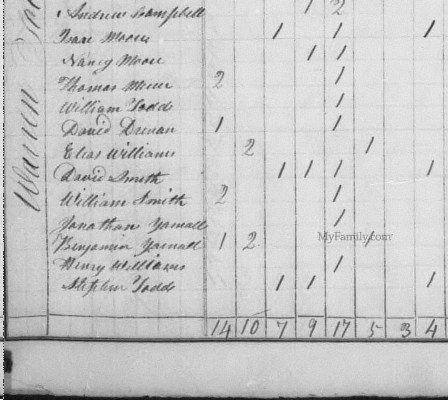 Andrew Campbell 1 2
Isaac Moore 1 1 1
Nancy Moore 1 1
Thomas 2 1
William Todd 1
David 1 1
Elias Williams 2 1
David Smith 1 1 1 1
William Smith 2 1
Jonathan Yarnall 1
MyFamily.com
Benjamin Yarnall 1 2 1
Henry Williams 1
Stephen Todd 1 1 1
14 10 7 9 17 5 3 4